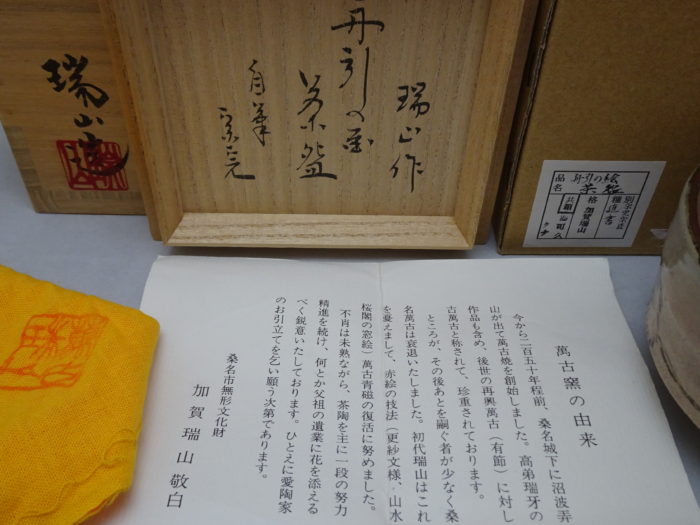 瑞山造
瑞山作
舟引の画
茶盌
自筆
宗完
品名
舟引の絵
茶盌
加賀瑞山
萬古窯の由来
今から二百五十年程前、桑名城下に沼波弄
山が出て萬古焼を創始しました。高弟瑞牙の
作品も含め、後世の再興萬古（有節）に対し
古萬古と称されて、珍重されております。
ところが、その後あとを嗣ぐ者が少なく桑
名萬古は衰退いたしました。初代瑞山はこれ
を憂えまして、赤絵の技法（更紗文様・山水
桜閣の窓絵）萬古青磁の復活に努めました。
不肖は未熟ながら、茶陶を主に一段の努力
精進を続け、何とか父祖の遺業に花を添える
べく鋭意いたしております。ひとえに愛陶家
のお引立てを乞い願う次第であります。
桑名市無形文化財
加賀瑞山敬白